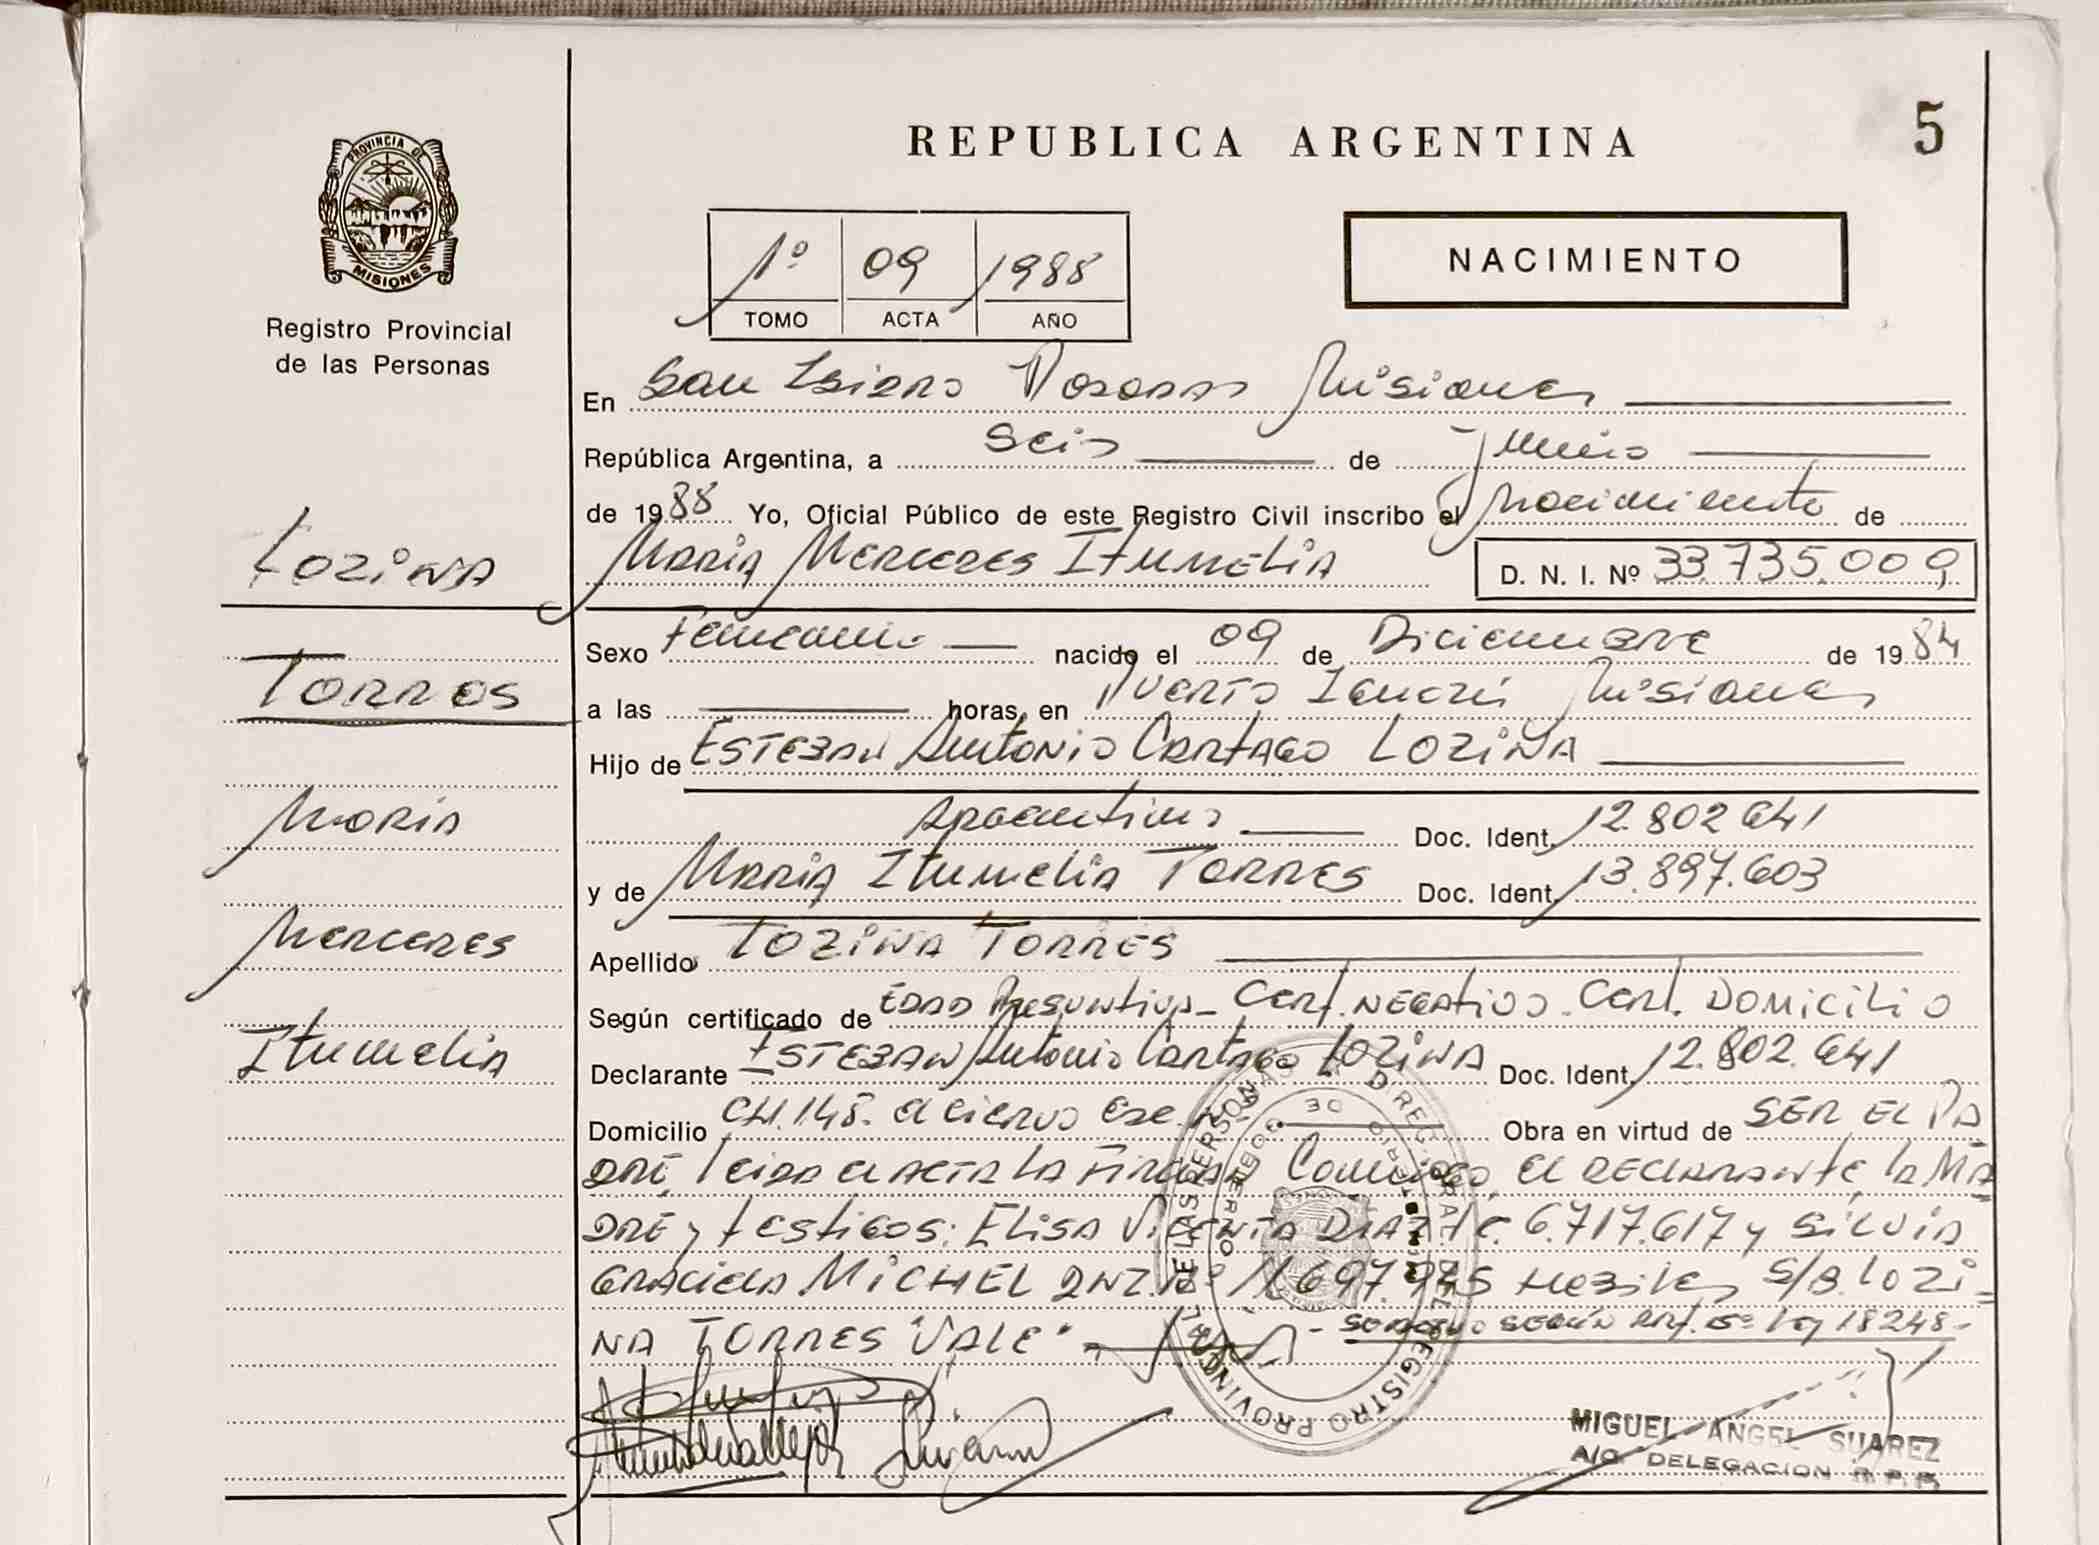 REPUBLICA ARGENTINA
5
PROVINCIA DE
MISIONES
Registro Provincial
de las Personas
1º 09 1988
TOMO ACTA AÑO
NACIMIENTO
En San Isidro Posadas Misiones
República Argentina, a seis de Junio
de 1988 Yo, Oficial Público de este Registro Civil inscribo el Nacimiento de
Maria Mercedes Itumelia D. N. I. Nº 33.735.009
Lozina
Torres
Maria
Mercedes
Itumelia
Sexo Femenino nacido el 09 de Diciembre de 1984
a las horas, en Puerto Iguazú Misiones
Hijo de Esteban Antonio Cartago Lozina
Argentino Doc. Ident. 12.802.641
y de Maria Itumelia Torres Doc. Ident. 13.897.603
Apellido Lozina Torres
Según certificado de Edad Presuntiva - Cert. Negativo - Cert. Domicilio
Declarante Esteban Antonio Cartago Lozina Doc. Ident. 12.802.641
Domicilio CH.148. Obra en virtud de SER EL PA
DRE, leida el acta la firman Conmigo, el declarante, la MA
DRE y testigos: Elisa Vicenta DIAZ 6.717.617 y Silvia
Graciela MICHEL S/B. Lozi-
NA TORRES "VALE"
según Art. 18248-
MIGUEL ANGEL SUAREZ
A/C. DELEGACION R. P. P.